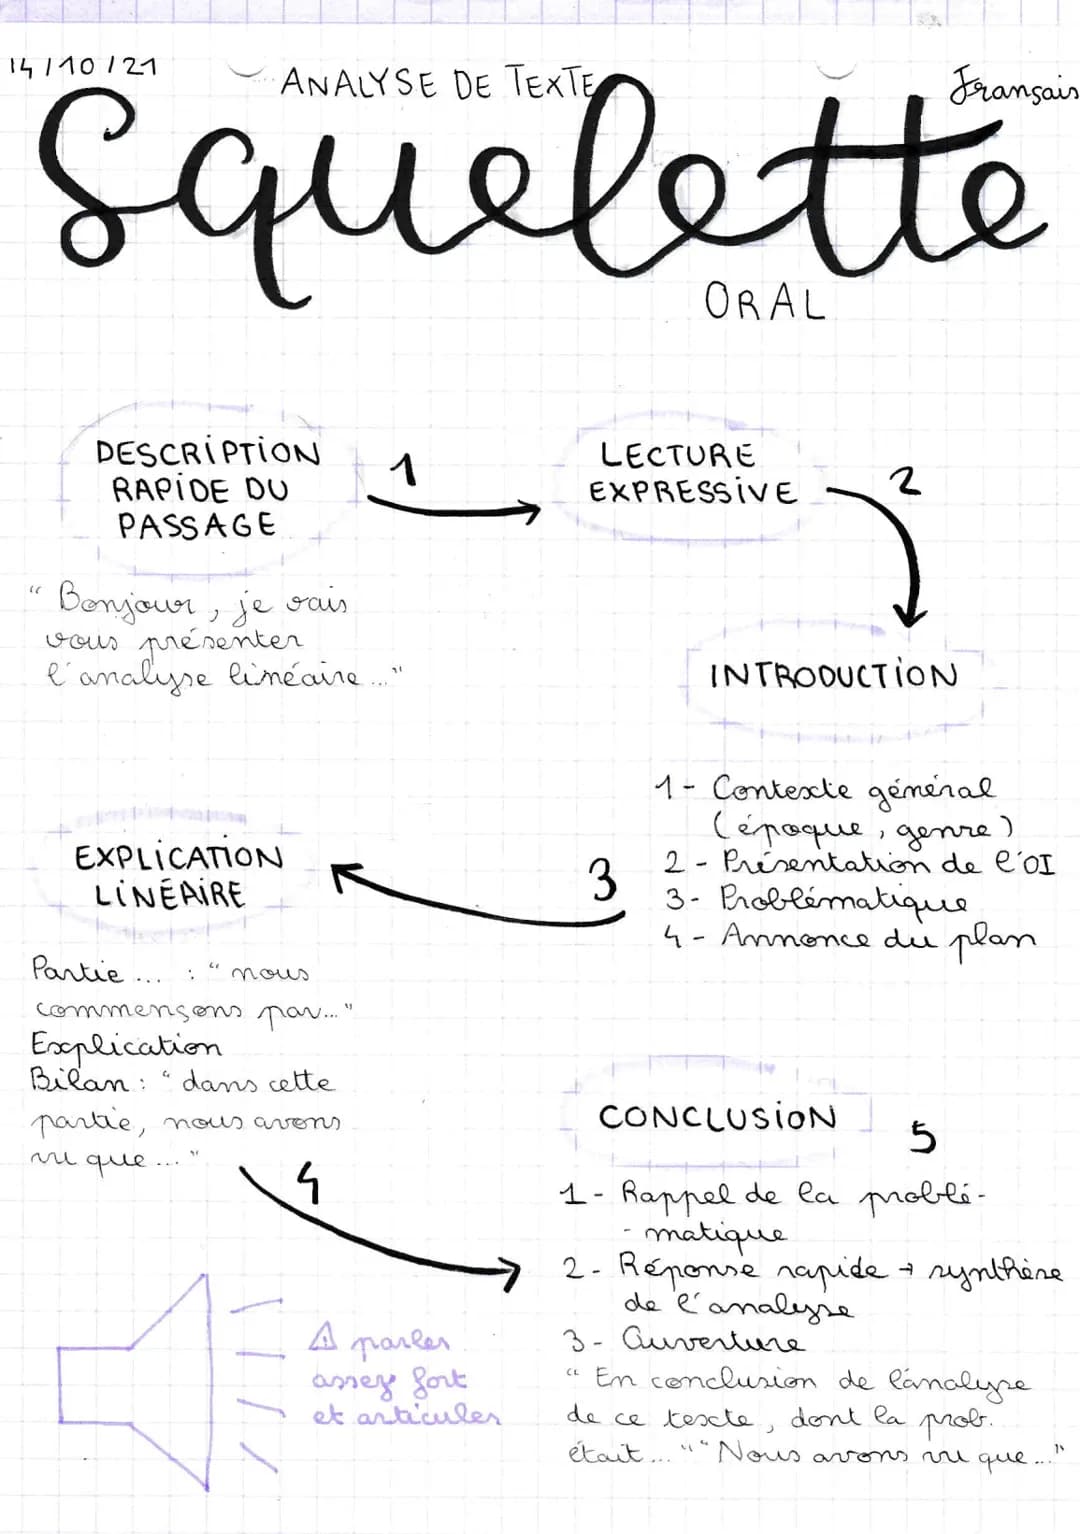 14/10/21
ANALYSE DE TEXTE
Français
Squelette
ORAL
DESCRIPTION
RAPIDE DU
PASSAGE
1
LECTURE
EXPRESSIVE
2
"Bonjour, je vais
vous présenter
l'analyse linéaire..."
INTRODUCTION
1- Contexte général
(époque, genre)
2- Présentation de l'OI
3- Problématique
4- Annonce du plan
3
EXPLICATION
LINÉAIRE
Partie ... : "nous
commençons par..."
Explication
Bilan : "dans cette
partie, nous avons
vu que..."
4
CONCLUSION
5
1- Rappel de la problé-
- matique
2- Réponse rapide → synthèse
de l'analyse
3- Ouverture
"En conclusion de l'analyse
de ce texte, dont la prob.
était..." "Nous avons vu que..."
⚠ parler
assez fort
et articuler